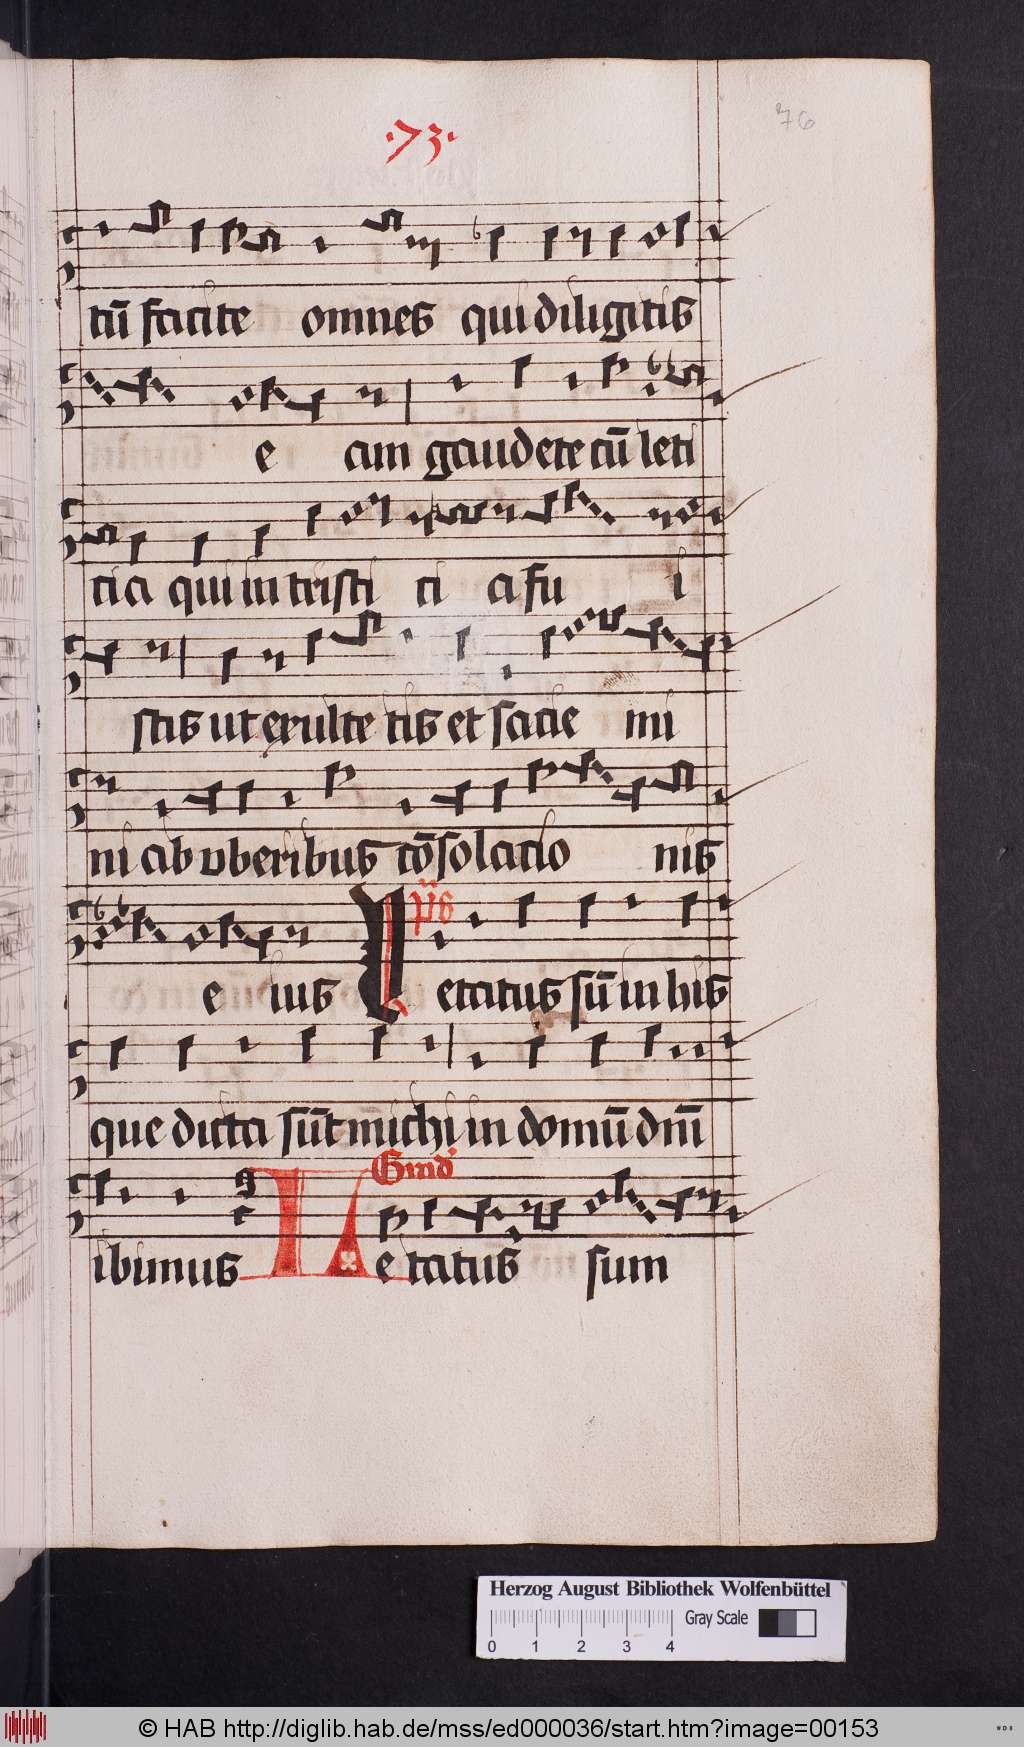 .73.
76
tū facite omnes qui diligitis
e am gaudete cū leti
cia qui in tristi ti a fu i
stis ut exulte tis et sacie mi
ni ab vberibus cōsolacio nis
p̄s
e ius Letatus sū in his
que dicta sūt michi in domū dn̄i
Grad'
ibimus Le tatus sum
Herzog August Bibliothek Wolfenbüttel
Gray Scale
0 1 2 3 4
© HAB http://diglib.hab.de/mss/ed000036/start.htm?image=00153
WDB